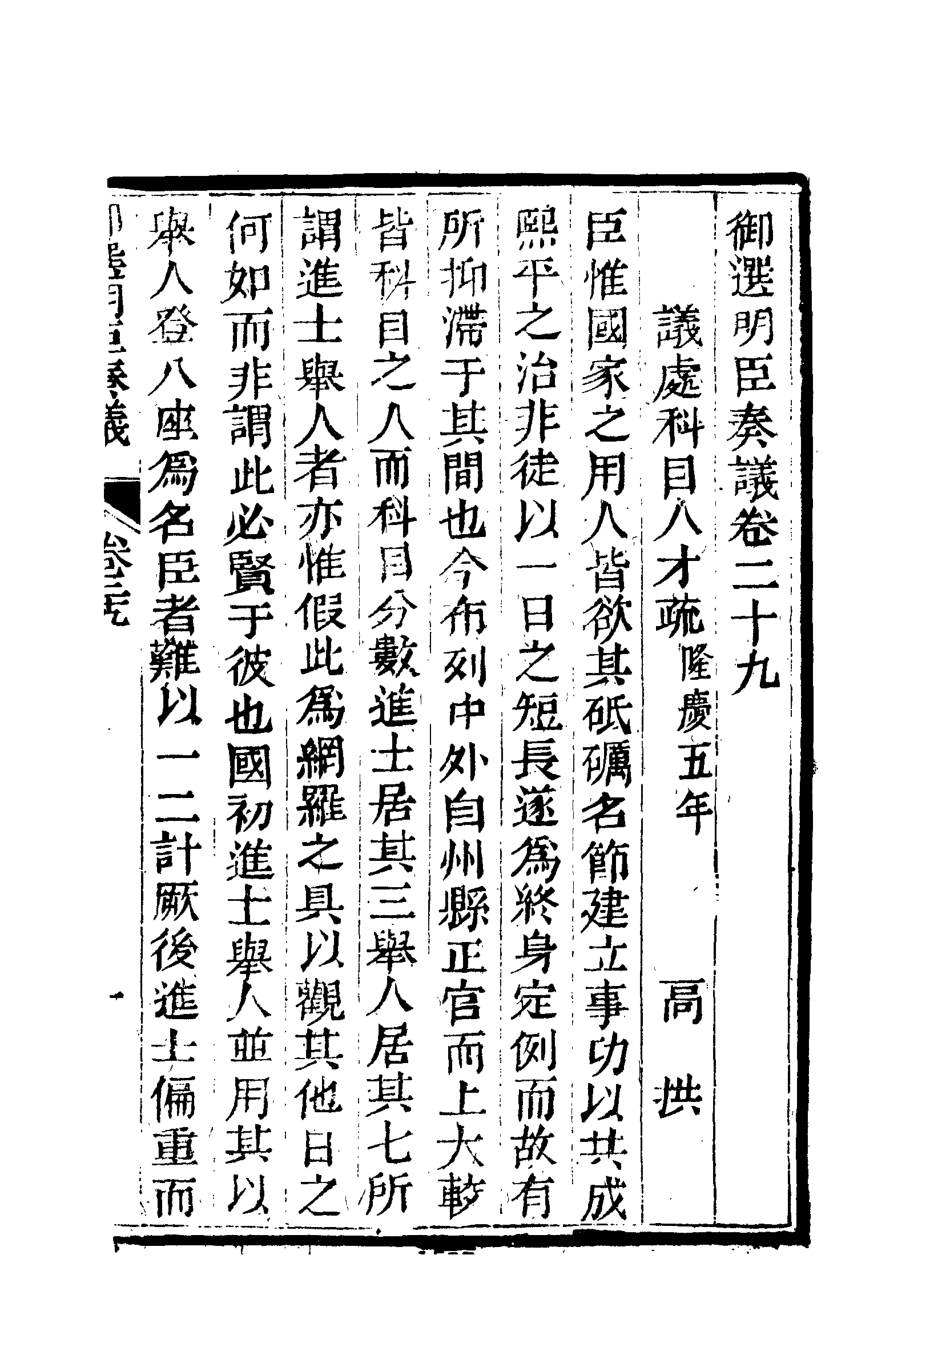 御選明臣奏議卷二十九
議處科目人才疏隆慶五年 高拱
臣惟國家之用人皆欲其砥礪名節建立事功以共成
熙平之治非徒以一日之短長遂爲終身定例而故有
所抑滯于其間也今布列中外自州縣正官而上大較
皆科目之人而科目分數進士居其三舉人居其七所
謂進士舉人者亦惟假此爲網羅之具以觀其他日之
何如而非謂此必賢于彼也國初進士舉人並用其以
舉人登八座爲名臣者難以一二計厥後進士偏重而
御選明臣奏議 卷二十九 一